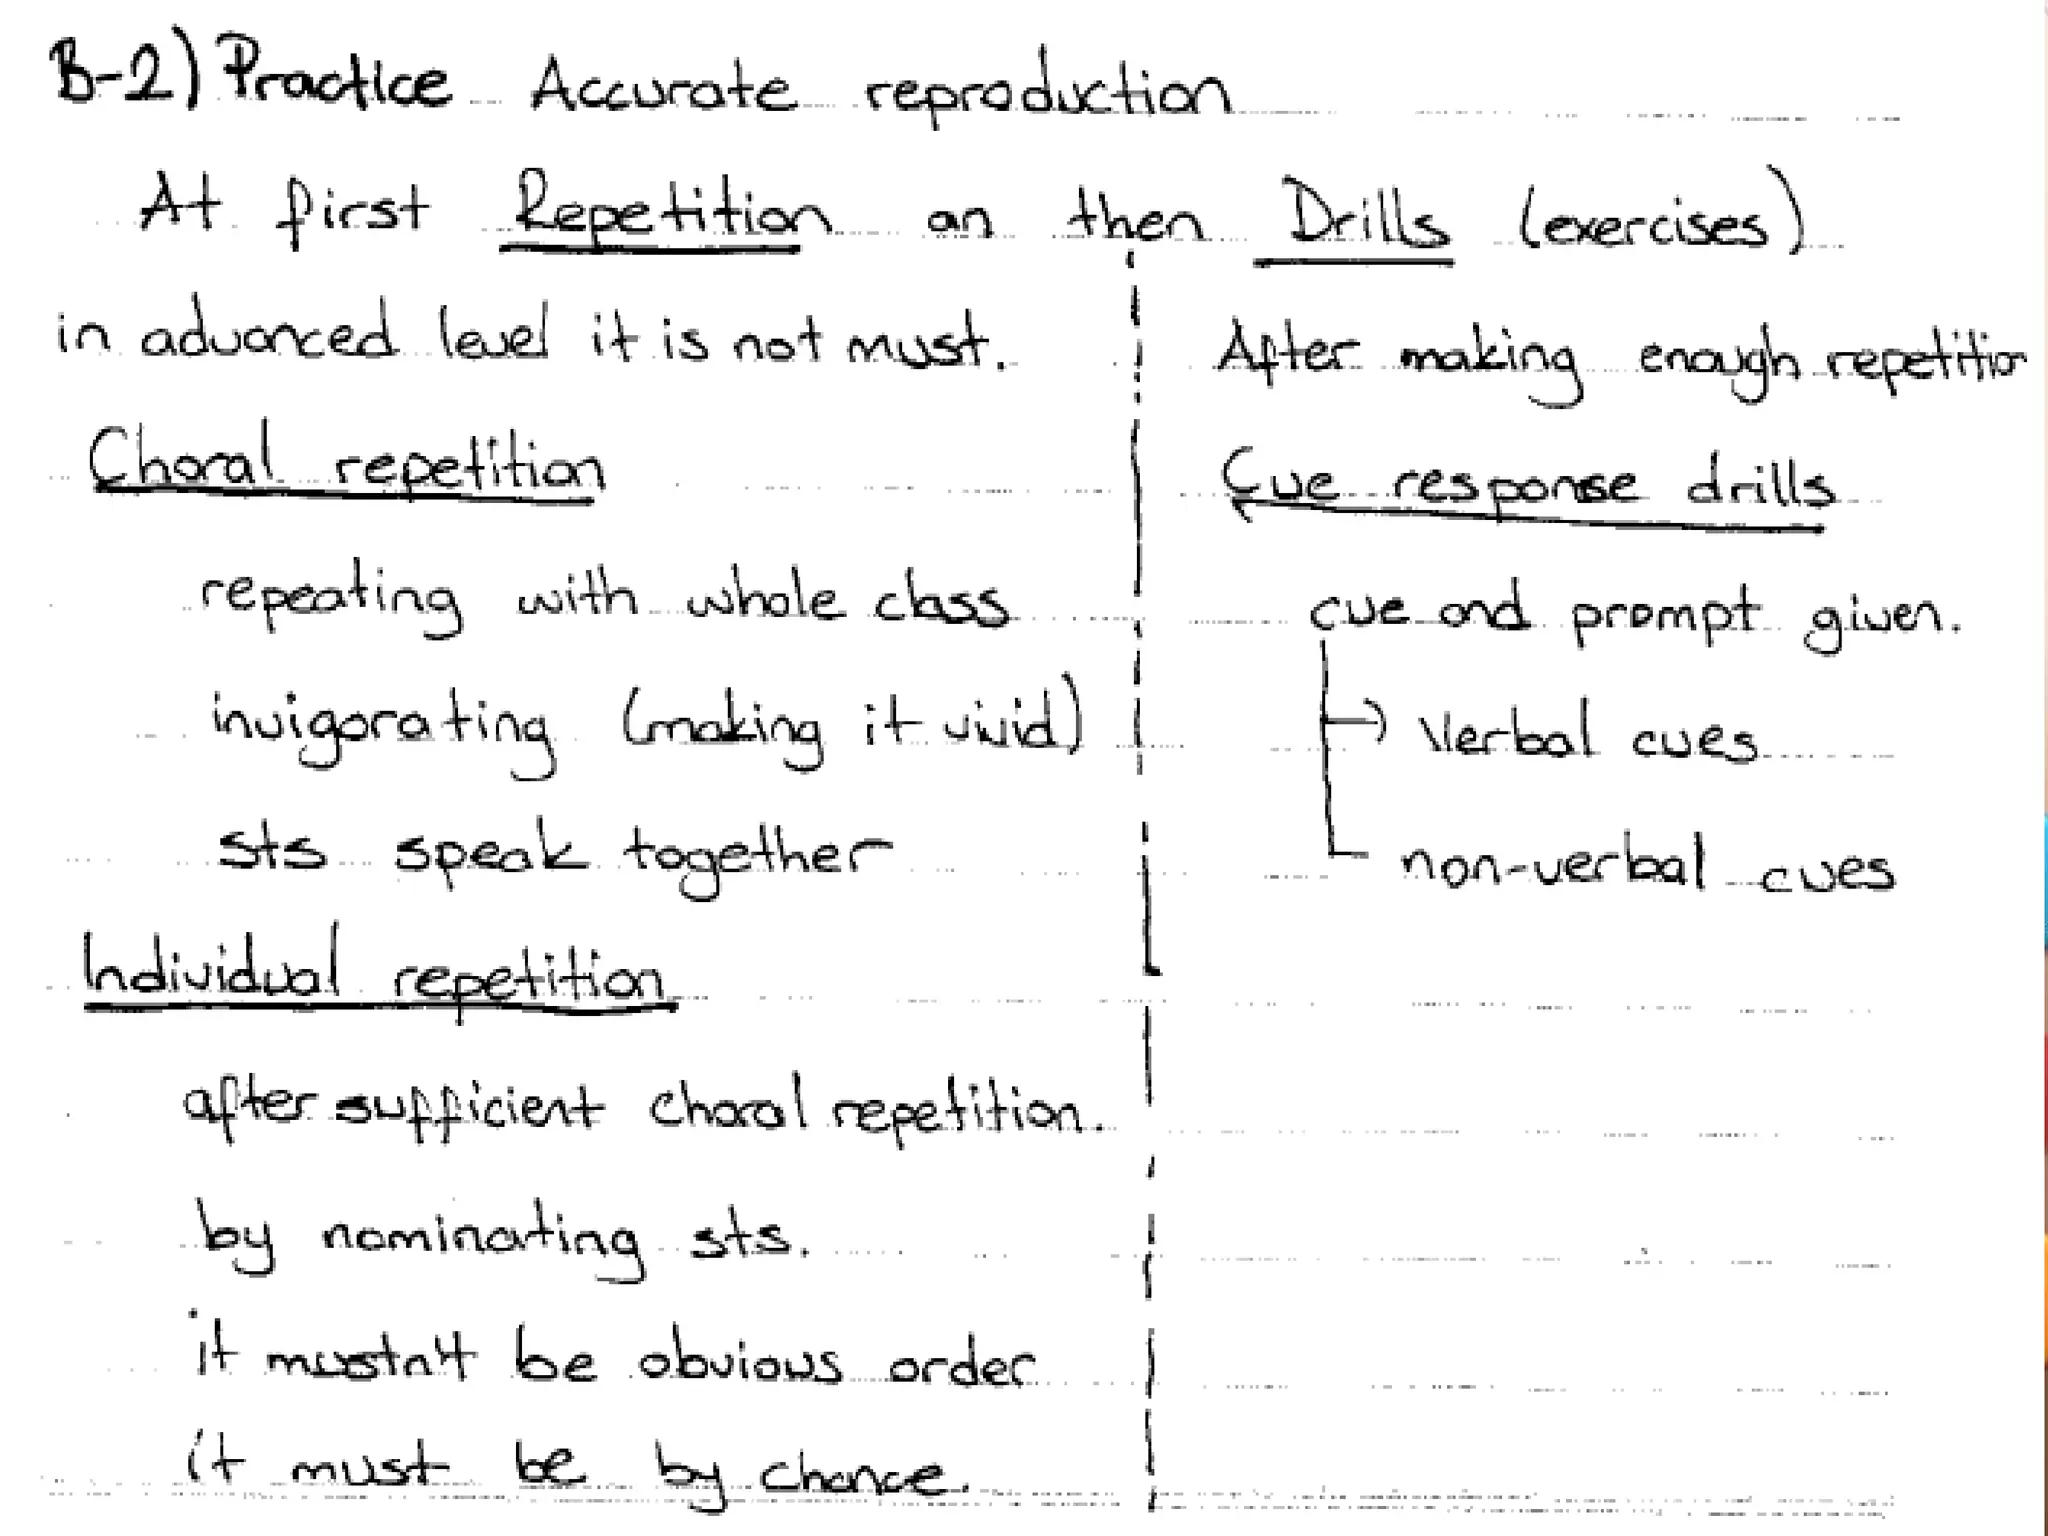 B-2) Practice Accurate reproduction
At first Repetition an then Drills (exercises)
in advanced level it is not must.
Choral repetition
repeating with whole class
invigorating (making it vivid)
sts speak together
Individual repetition
after sufficient choral repetition.
by nominating sts.
it mustn't be obvious order
it must be by chance.
After making enough repetition
Cue response drills
cue and prompt given.
→ Verbal cues
non-verbal cues